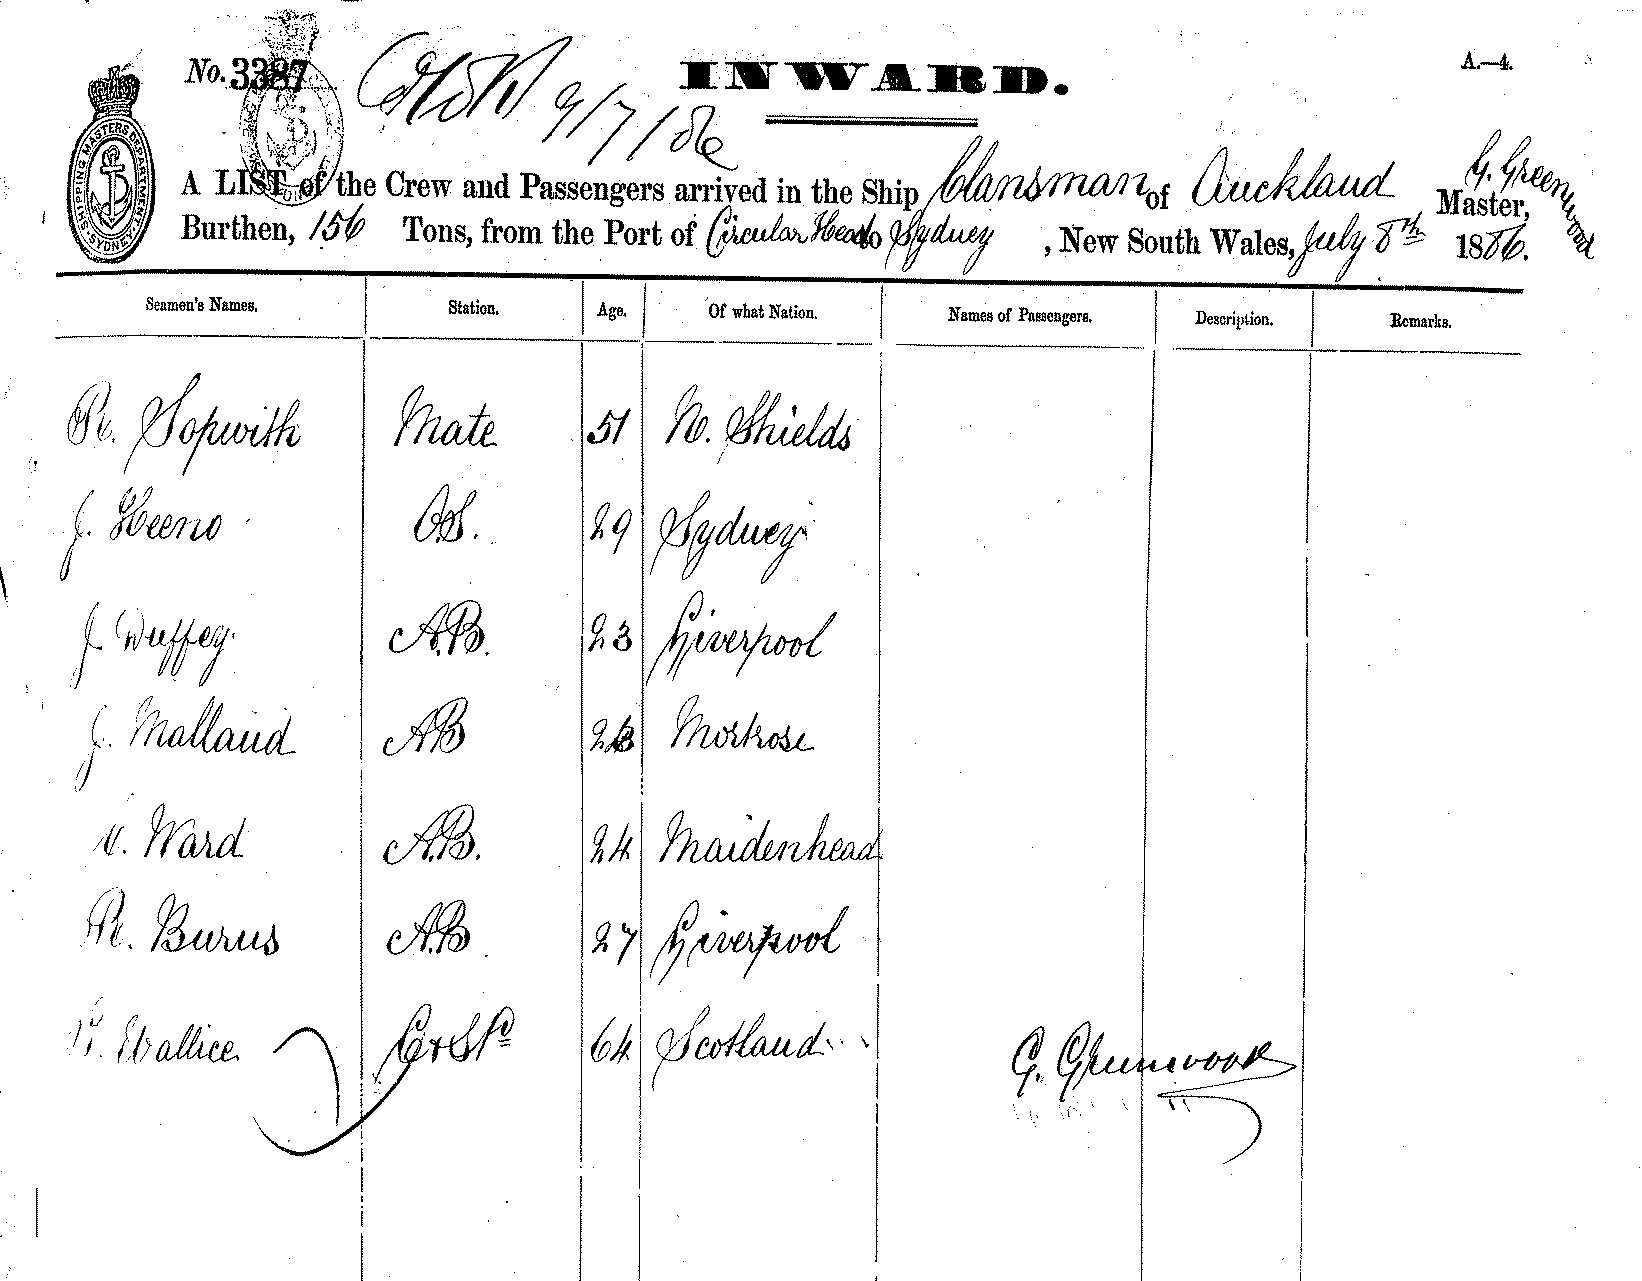 No. 3387 9/7/86 INWARD. A.—4.
SHIPPING MASTERS DEPARTMENT SYDNEY
A LIST of the Crew and Passengers arrived in the Ship Clansman of Auckland G. Greenwood Master,
Burthen, 156 Tons, from the Port of Circular Head to Sydney, New South Wales, July 8th 1886.
Seamen's Names. Station. Age. Of what Nation. Names of Passengers. Description. Remarks.
R. Sopwith Mate 51 N. Shields
J. Keeno OS. 29 Sydney
J. Duffey A.B. 23 Liverpool
J. Mallaud AB 23 Montrose
Ward A.B. 24 Maidenhead
R. Burus A.B 27 Liverpool
Wallice C & Std 64 Scotland
G. Greenwood